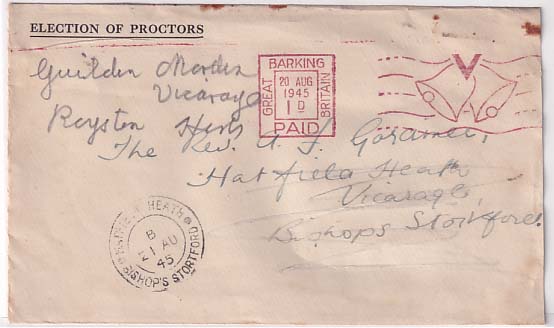 ELECTION OF PROCTORS
Guilden Morden
Vicarage
Royston Herts
BARKING
GREAT
20 AUG
1945
1 D
BRITAIN
PAID
V
The Rev. A
Hatfield Heath
Vicarage,
Bishops Stortford.
HATFIELD HEATH
B
21 AU
45
BISHOP'S STORTFORD